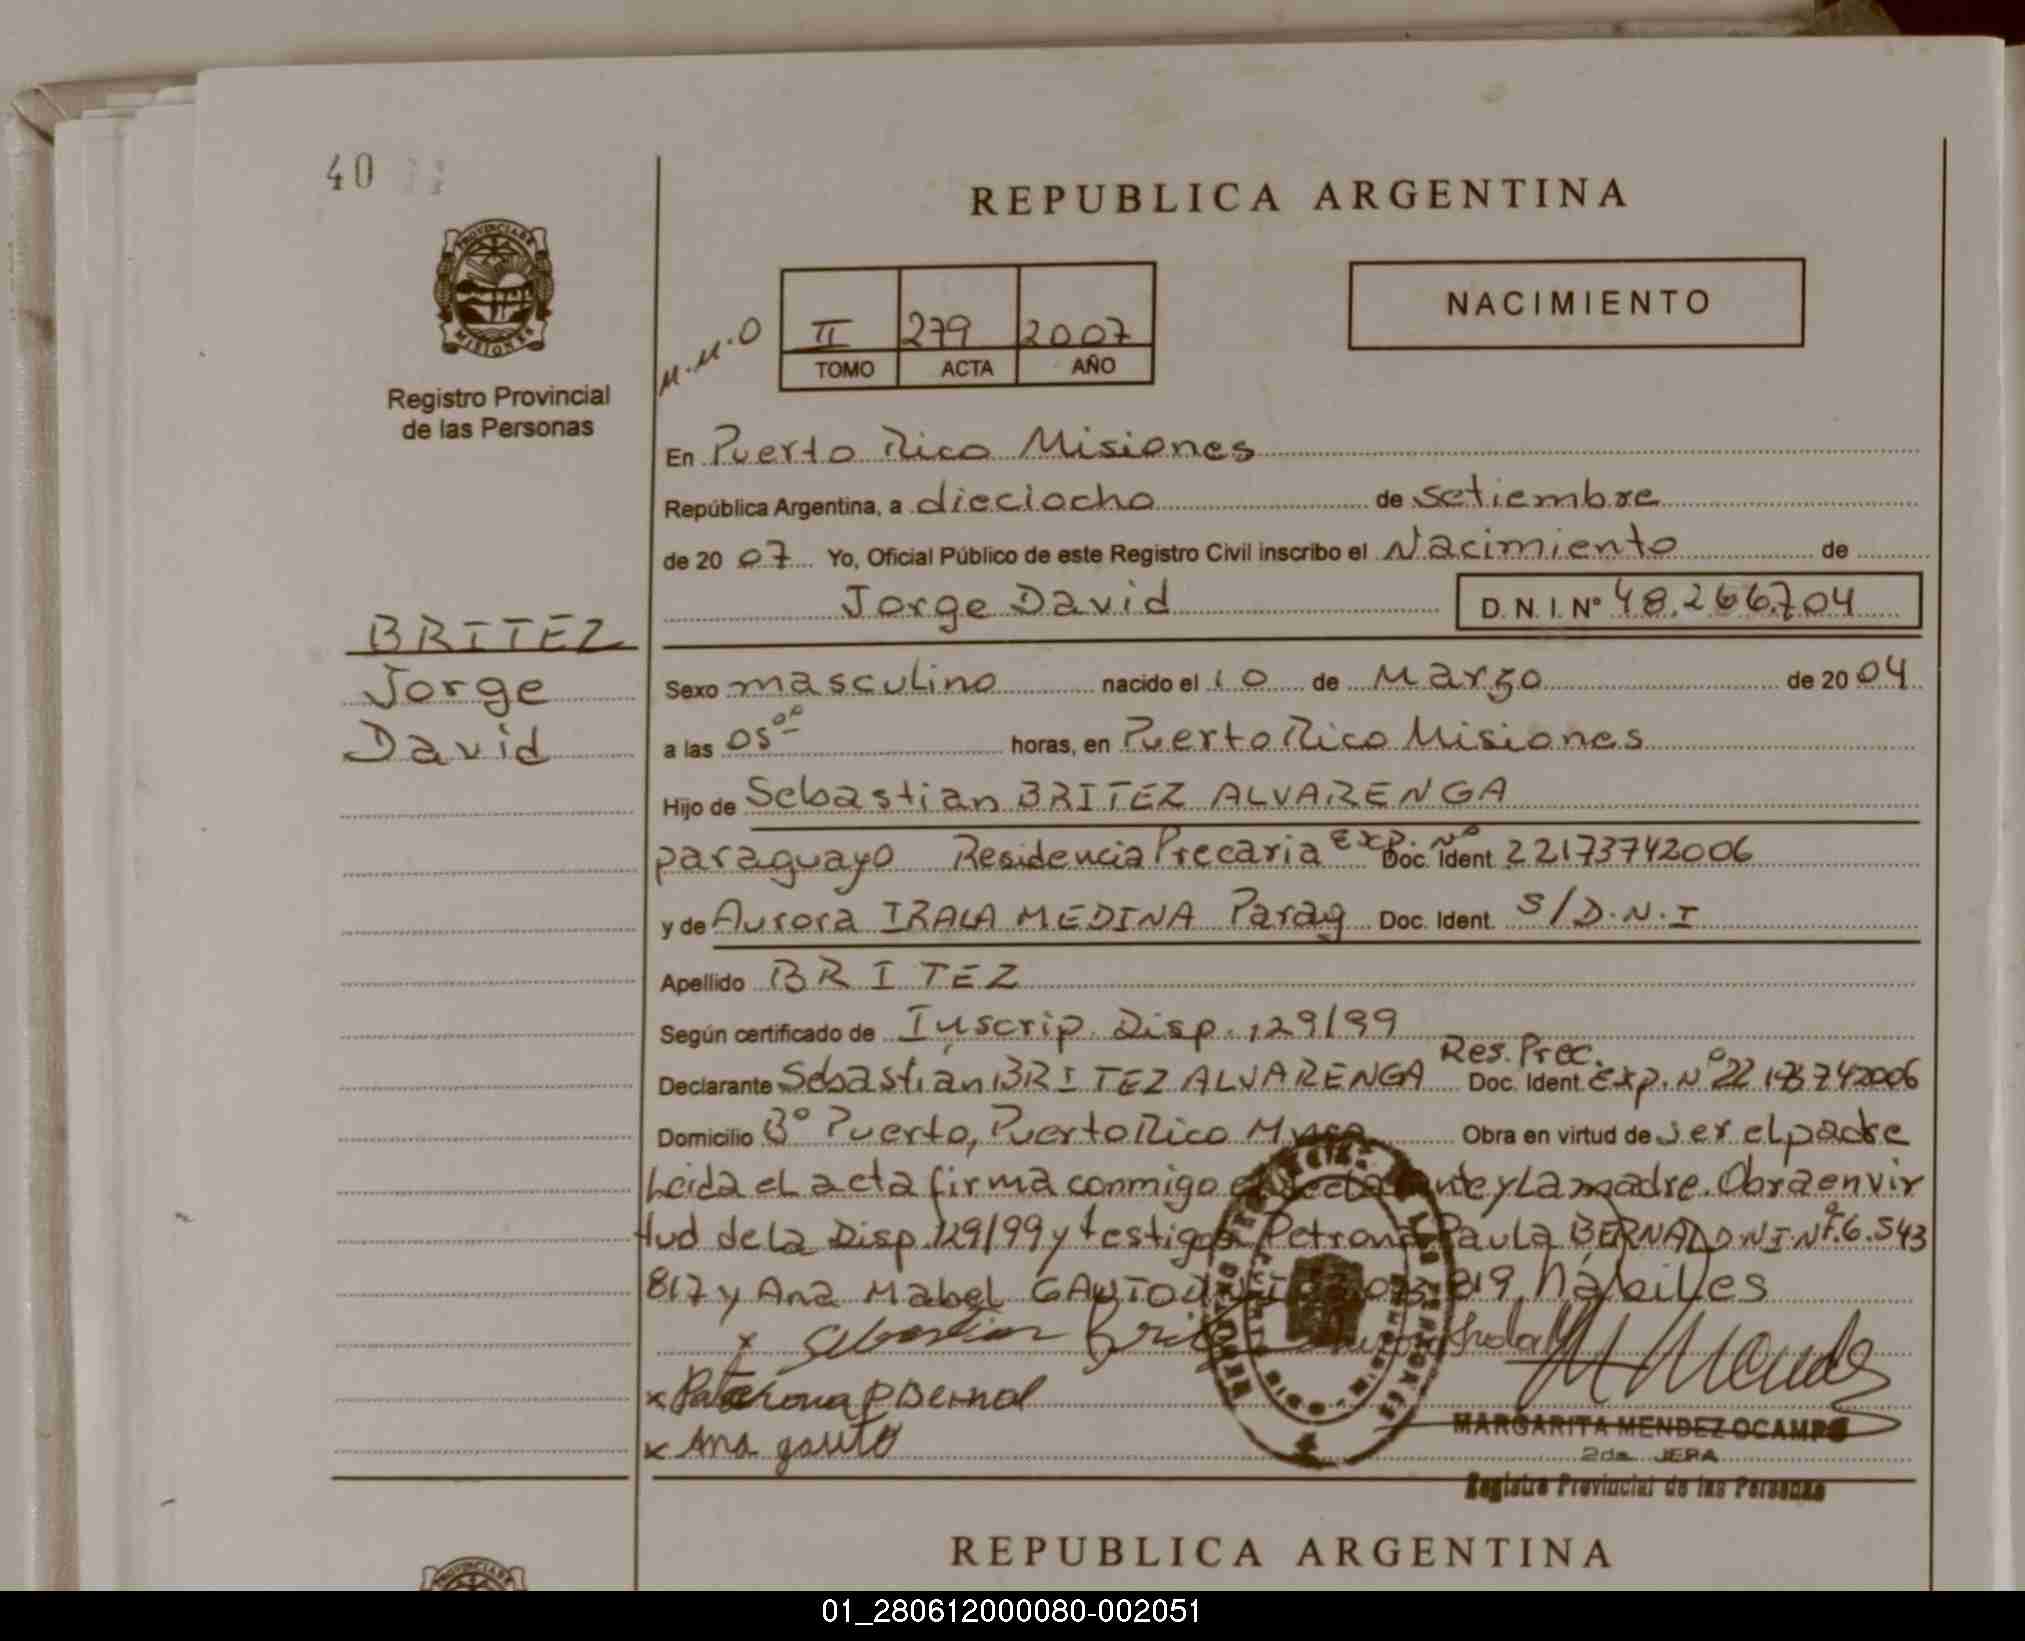 40
REPUBLICA ARGENTINA
PROVINCIA DE
MISIONES
NACIMIENTO
M.M.O
II 279 2007
TOMO ACTA AÑO
Registro Provincial
de las Personas
En Puerto Rico Misiones
República Argentina, a dieciocho de setiembre
de 20 07 Yo, Oficial Público de este Registro Civil inscribo el Nacimiento de
Jorge David D. N. I. Nº 48.266.704
BRITEZ
Jorge
David
Sexo masculino nacido el 10 de Marzo de 20 04
a las 05ºº horas, en Puerto Rico Misiones
Hijo de Sebastian BRITEZ ALVARENGA
paraguayo Residencia Precaria Exp. Nº Doc. Ident 22173742006
y de Aurora IRALA MEDINA Parag Doc. Ident. S/D.N.I
Apellido BRITEZ
Según certificado de Inscrip. Disp. 129/99
Res. Prec.
Declarante Sebastián BRITEZ ALVARENGA Doc. Ident. Exp. Nº 22173742006
Domicilio Bº Puerto, Puerto Rico Mnes Obra en virtud de ser el padre
Leida el acta firma conmigo el declarante y la madre. Obra en vir
tud de la Disp 129/99 y testigos Petrona Paula BERNAL D.N.I. Nº F.6.543
817 y Ana Mabel GAUTO 819, hábiles
x Sebastian Brite
x Petrona P Bernal
x Ana gauto
M Mendez
MARGARITA MENDEZ OCAMPO
2da JEFA
Registro Provincial de las Personas
REPUBLICA ARGENTINA
01_280612000080-002051